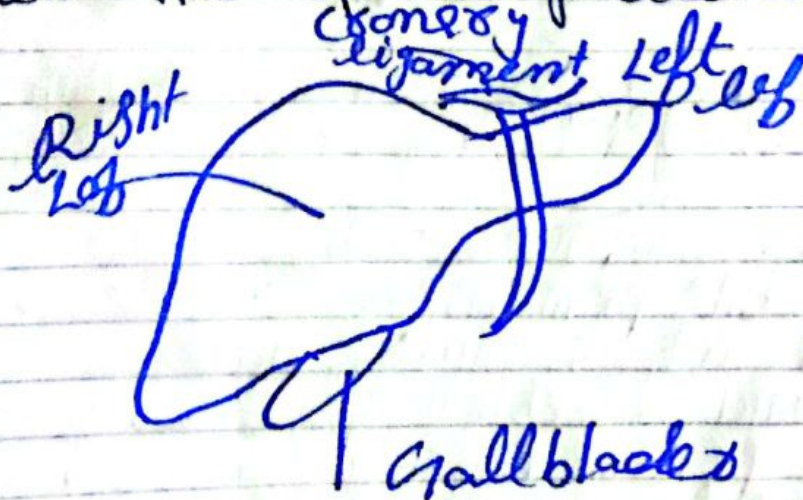 cronery
ligament
Left
lef
Right
Lof
Gallblader